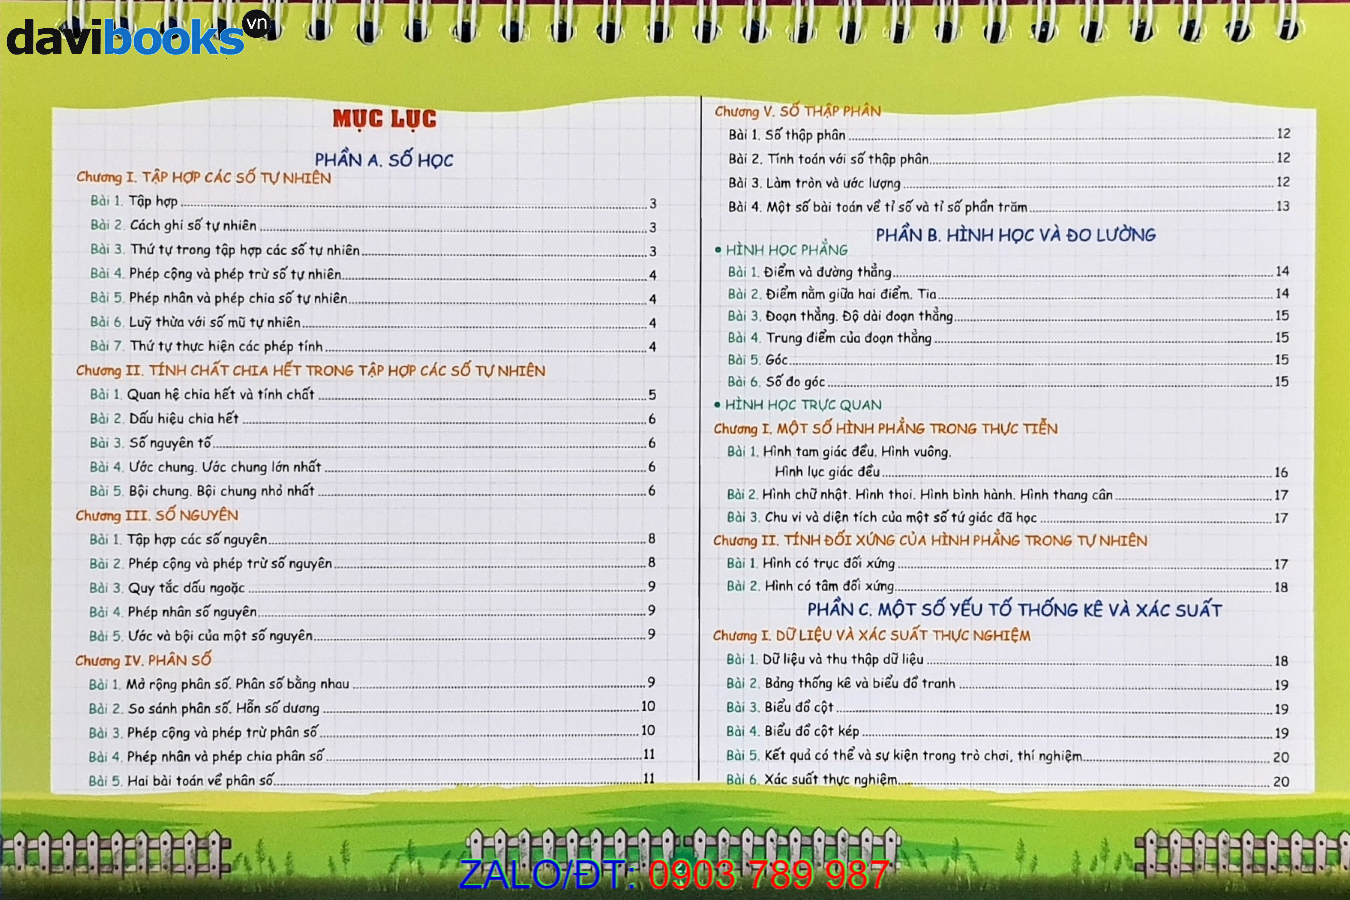 davibooks.vn
MỤC LỤC
PHẦN A. SỐ HỌC
Chương I. TẬP HỢP CÁC SỐ TỰ NHIÊN
Bài 1. Tập hợp 3
Bài 2. Cách ghi số tự nhiên 3
Bài 3. Thứ tự trong tập hợp các số tự nhiên 3
Bài 4. Phép cộng và phép trừ số tự nhiên 4
Bài 5. Phép nhân và phép chia số tự nhiên 4
Bài 6. Luỹ thừa với số mũ tự nhiên 4
Bài 7. Thứ tự thực hiện các phép tính 4
Chương II. TÍNH CHẤT CHIA HẾT TRONG TẬP HỢP CÁC SỐ TỰ NHIÊN
Bài 1. Quan hệ chia hết và tính chất 5
Bài 2. Dấu hiệu chia hết 6
Bài 3. Số nguyên tố 6
Bài 4. Ước chung. Ước chung lớn nhất 6
Bài 5. Bội chung. Bội chung nhỏ nhất 6
Chương III. SỐ NGUYÊN
Bài 1. Tập hợp các số nguyên 8
Bài 2. Phép cộng và phép trừ số nguyên 8
Bài 3. Quy tắc dấu ngoặc 9
Bài 4. Phép nhân số nguyên 9
Bài 5. Ước và bội của một số nguyên 9
Chương IV. PHÂN SỐ
Bài 1. Mở rộng phân số. Phân số bằng nhau 9
Bài 2. So sánh phân số. Hỗn số dương 10
Bài 3. Phép cộng và phép trừ phân số 10
Bài 4. Phép nhân và phép chia phân số 11
Bài 5. Hai bài toán về phân số 11
Chương V. SỐ THẬP PHÂN
Bài 1. Số thập phân 12
Bài 2. Tính toán với số thập phân 12
Bài 3. Làm tròn và ước lượng 12
Bài 4. Một số bài toán về tỉ số và tỉ số phần trăm 13
PHẦN B. HÌNH HỌC VÀ ĐO LƯỜNG
• HÌNH HỌC PHẲNG
Bài 1. Điểm và đường thẳng 14
Bài 2. Điểm nằm giữa hai điểm. Tia 14
Bài 3. Đoạn thẳng. Độ dài đoạn thẳng 15
Bài 4. Trung điểm của đoạn thẳng 15
Bài 5. Góc 15
Bài 6. Số đo góc 15
• HÌNH HỌC TRỰC QUAN
Chương I. MỘT SỐ HÌNH PHẲNG TRONG THỰC TIỄN
Bài 1. Hình tam giác đều. Hình vuông.
Hình lục giác đều 16
Bài 2. Hình chữ nhật. Hình thoi. Hình bình hành. Hình thang cân 17
Bài 3. Chu vi và diện tích của một số tứ giác đã học 17
Chương II. TÍNH ĐỐI XỨNG CỦA HÌNH PHẲNG TRONG TỰ NHIÊN
Bài 1. Hình có trục đối xứng 17
Bài 2. Hình có tâm đối xứng 18
PHẦN C. MỘT SỐ YẾU TỐ THỐNG KÊ VÀ XÁC SUẤT
Chương I. DỮ LIỆU VÀ XÁC SUẤT THỰC NGHIỆM
Bài 1. Dữ liệu và thu thập dữ liệu 18
Bài 2. Bảng thống kê và biểu đồ tranh 19
Bài 3. Biểu đồ cột 19
Bài 4. Biểu đồ cột kép 19
Bài 5. Kết quả có thể và sự kiện trong trò chơi, thí nghiệm 20
Bài 6. Xác suất thực nghiệm 20
ZALO/ĐT: 0903 789 987